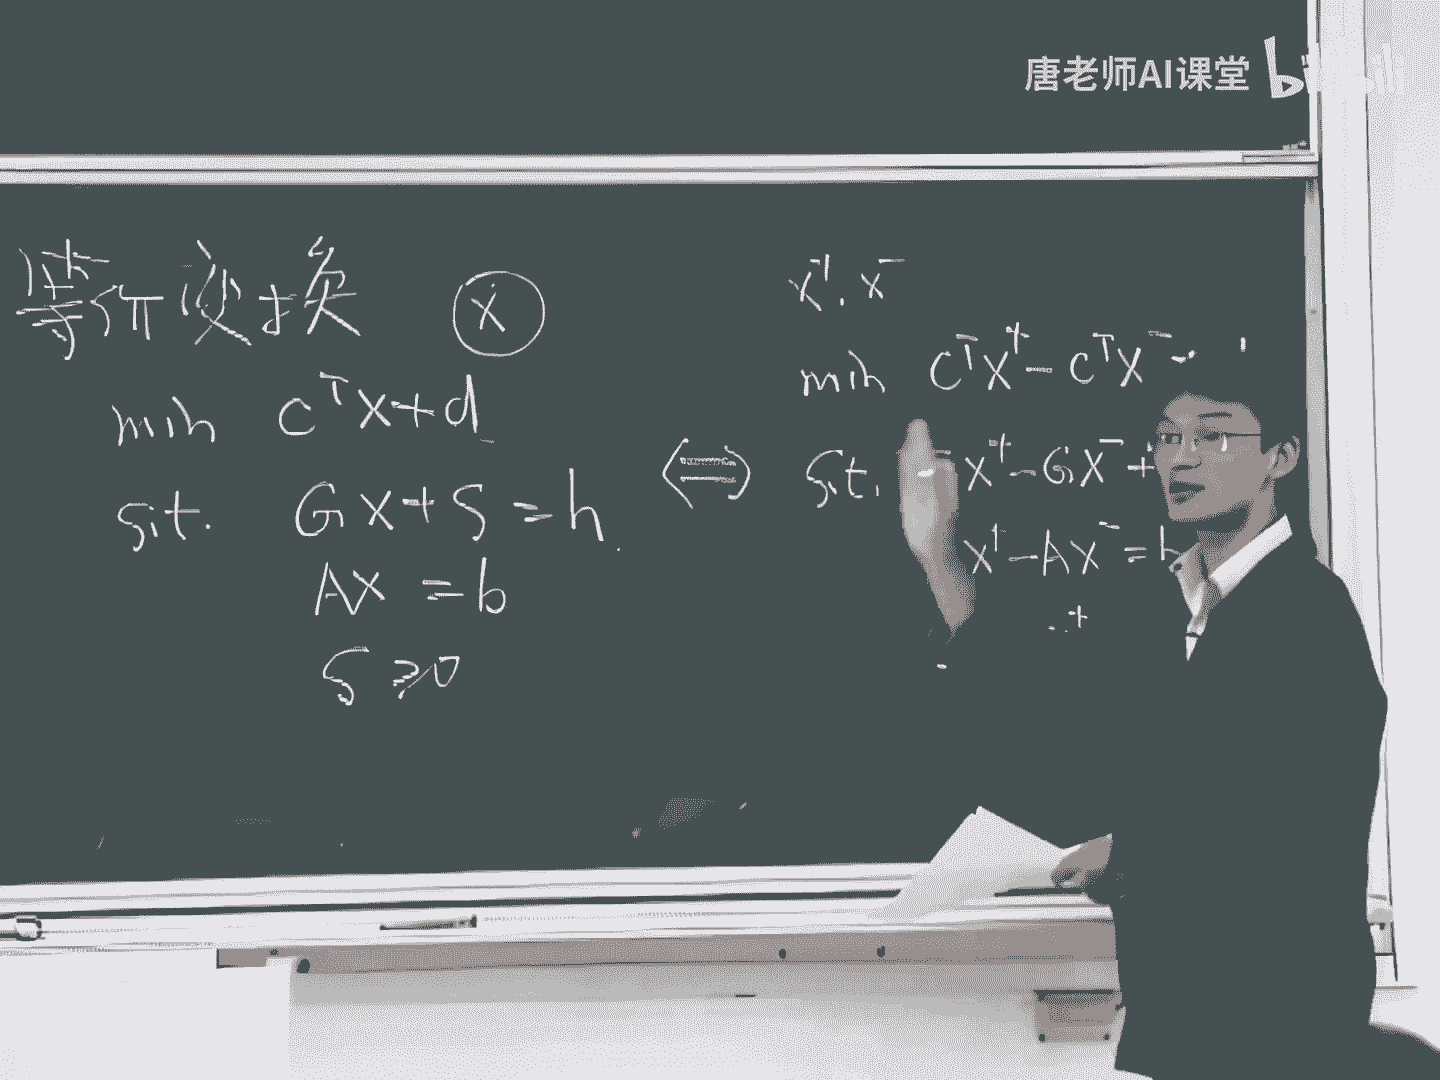 唐老师AI课堂 bilibili
等价变换 x
min cᵀx+d
s.t. Gx+s=h
Ax=b
s≥0
⟺
x⁺, x⁻
min cᵀx⁺-cᵀx⁻
s.t. x⁺-Gx⁻+
x⁺-Ax⁻=b